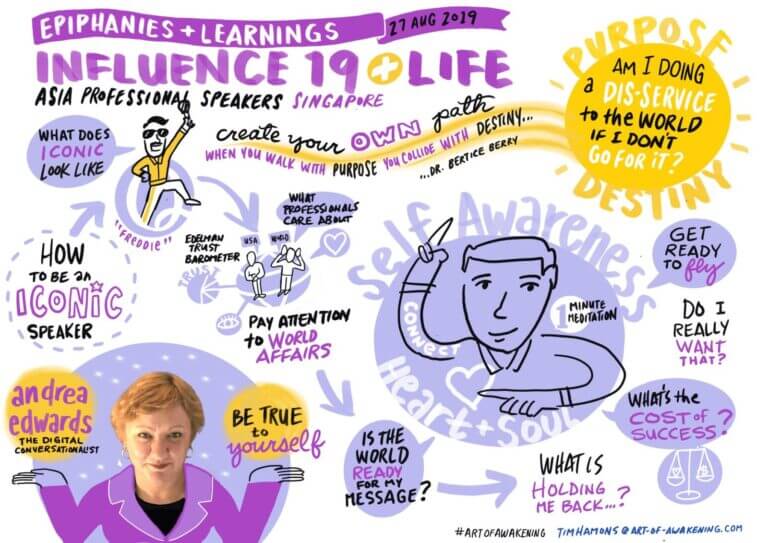 EPIPHANIES + LEARNINGS
27 AUG 2019
INFLUENCE 19 + LIFE
ASIA PROFESSIONAL SPEAKERS SINGAPORE
WHAT DOES
ICONIC
LOOK LIKE
"FREDDIE"
create your OWN path
WHEN YOU WALK WITH PURPOSE YOU COLLIDE WITH DESTINY...
...DR. BERTICE BERRY
PURPOSE
AM I DOING
a DIS-SERVICE
to the WORLD
IF I DON'T
GO FOR IT?
DESTINY
HOW
TO BE an
ICONIC
SPEAKER
EDELMAN
TRUST
BAROMETER
TRUST
USA
WORLD
WHAT
PROFESSIONALS
CARE ABOUT
PAY ATTENTION
to WORLD
AFFAIRS
Self Awareness
1 MINUTE
MEDITATION
CONNECT
Heart + Soul
GET
READY
TO fly
DO I
REALLY
WANT
THAT?
WHAT'S the
COST of
SUCCESS?
andrea
edwards
THE DIGITAL
CONVERSATIONALIST
BE TRUE
to
yourself
IS THE
WORLD
READY
FOR MY
MESSAGE?
WHAT IS
HOLDING
ME BACK...?
#ARTOFAWAKENING TIMHAMONS@ART-OF-AWAKENING.COM